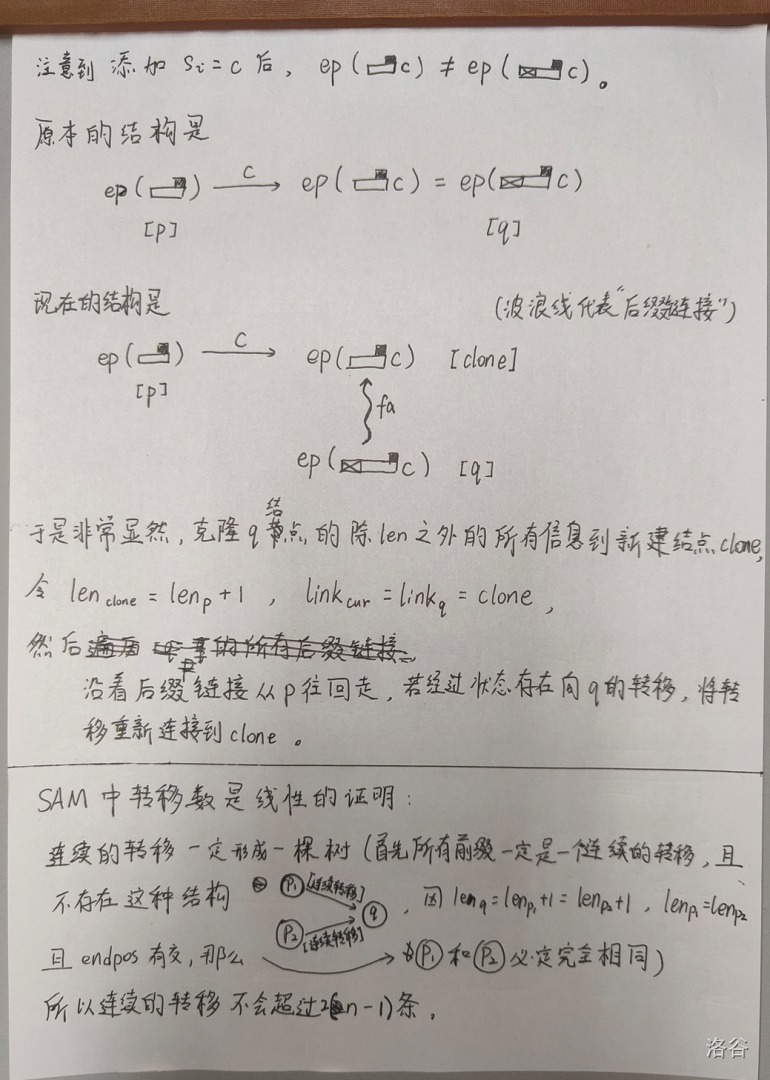 注意到 添加 Si=c 后，ep(c) ≠ ep(c)。
原本的结构是
ep() c→ ep(c) = ep(c)
[p] [q]
现在的结构是 (波浪线代表"后缀链接")
ep() c→ ep(c) [clone]
[p]
fa
ep(c) [q]
结
于是非常显然，克隆 q 点的除 len 之外的所有信息到新建结点 clone,
令 len clone = len p + 1 , link cur = link q = clone ,
然后
沿着后缀链接从 p 往回走，若经过状态存在向 q 的转移，将转
移重新连接到 clone 。
SAM 中转移数是线性的证明：
连续的转移一定形成一棵树 (首先所有前缀一定是一个连续的转移，且
不存在这种结构 P1 [连续转移] q P2 [连续转移] ，因 len q = len p1 + 1 = len p2 + 1 , len p1 = len p2
且 endpos 有交，那么 → P1 和 P2 必定完全相同)
所以连续的转移不会超过 2n-1) 条 .
洛谷